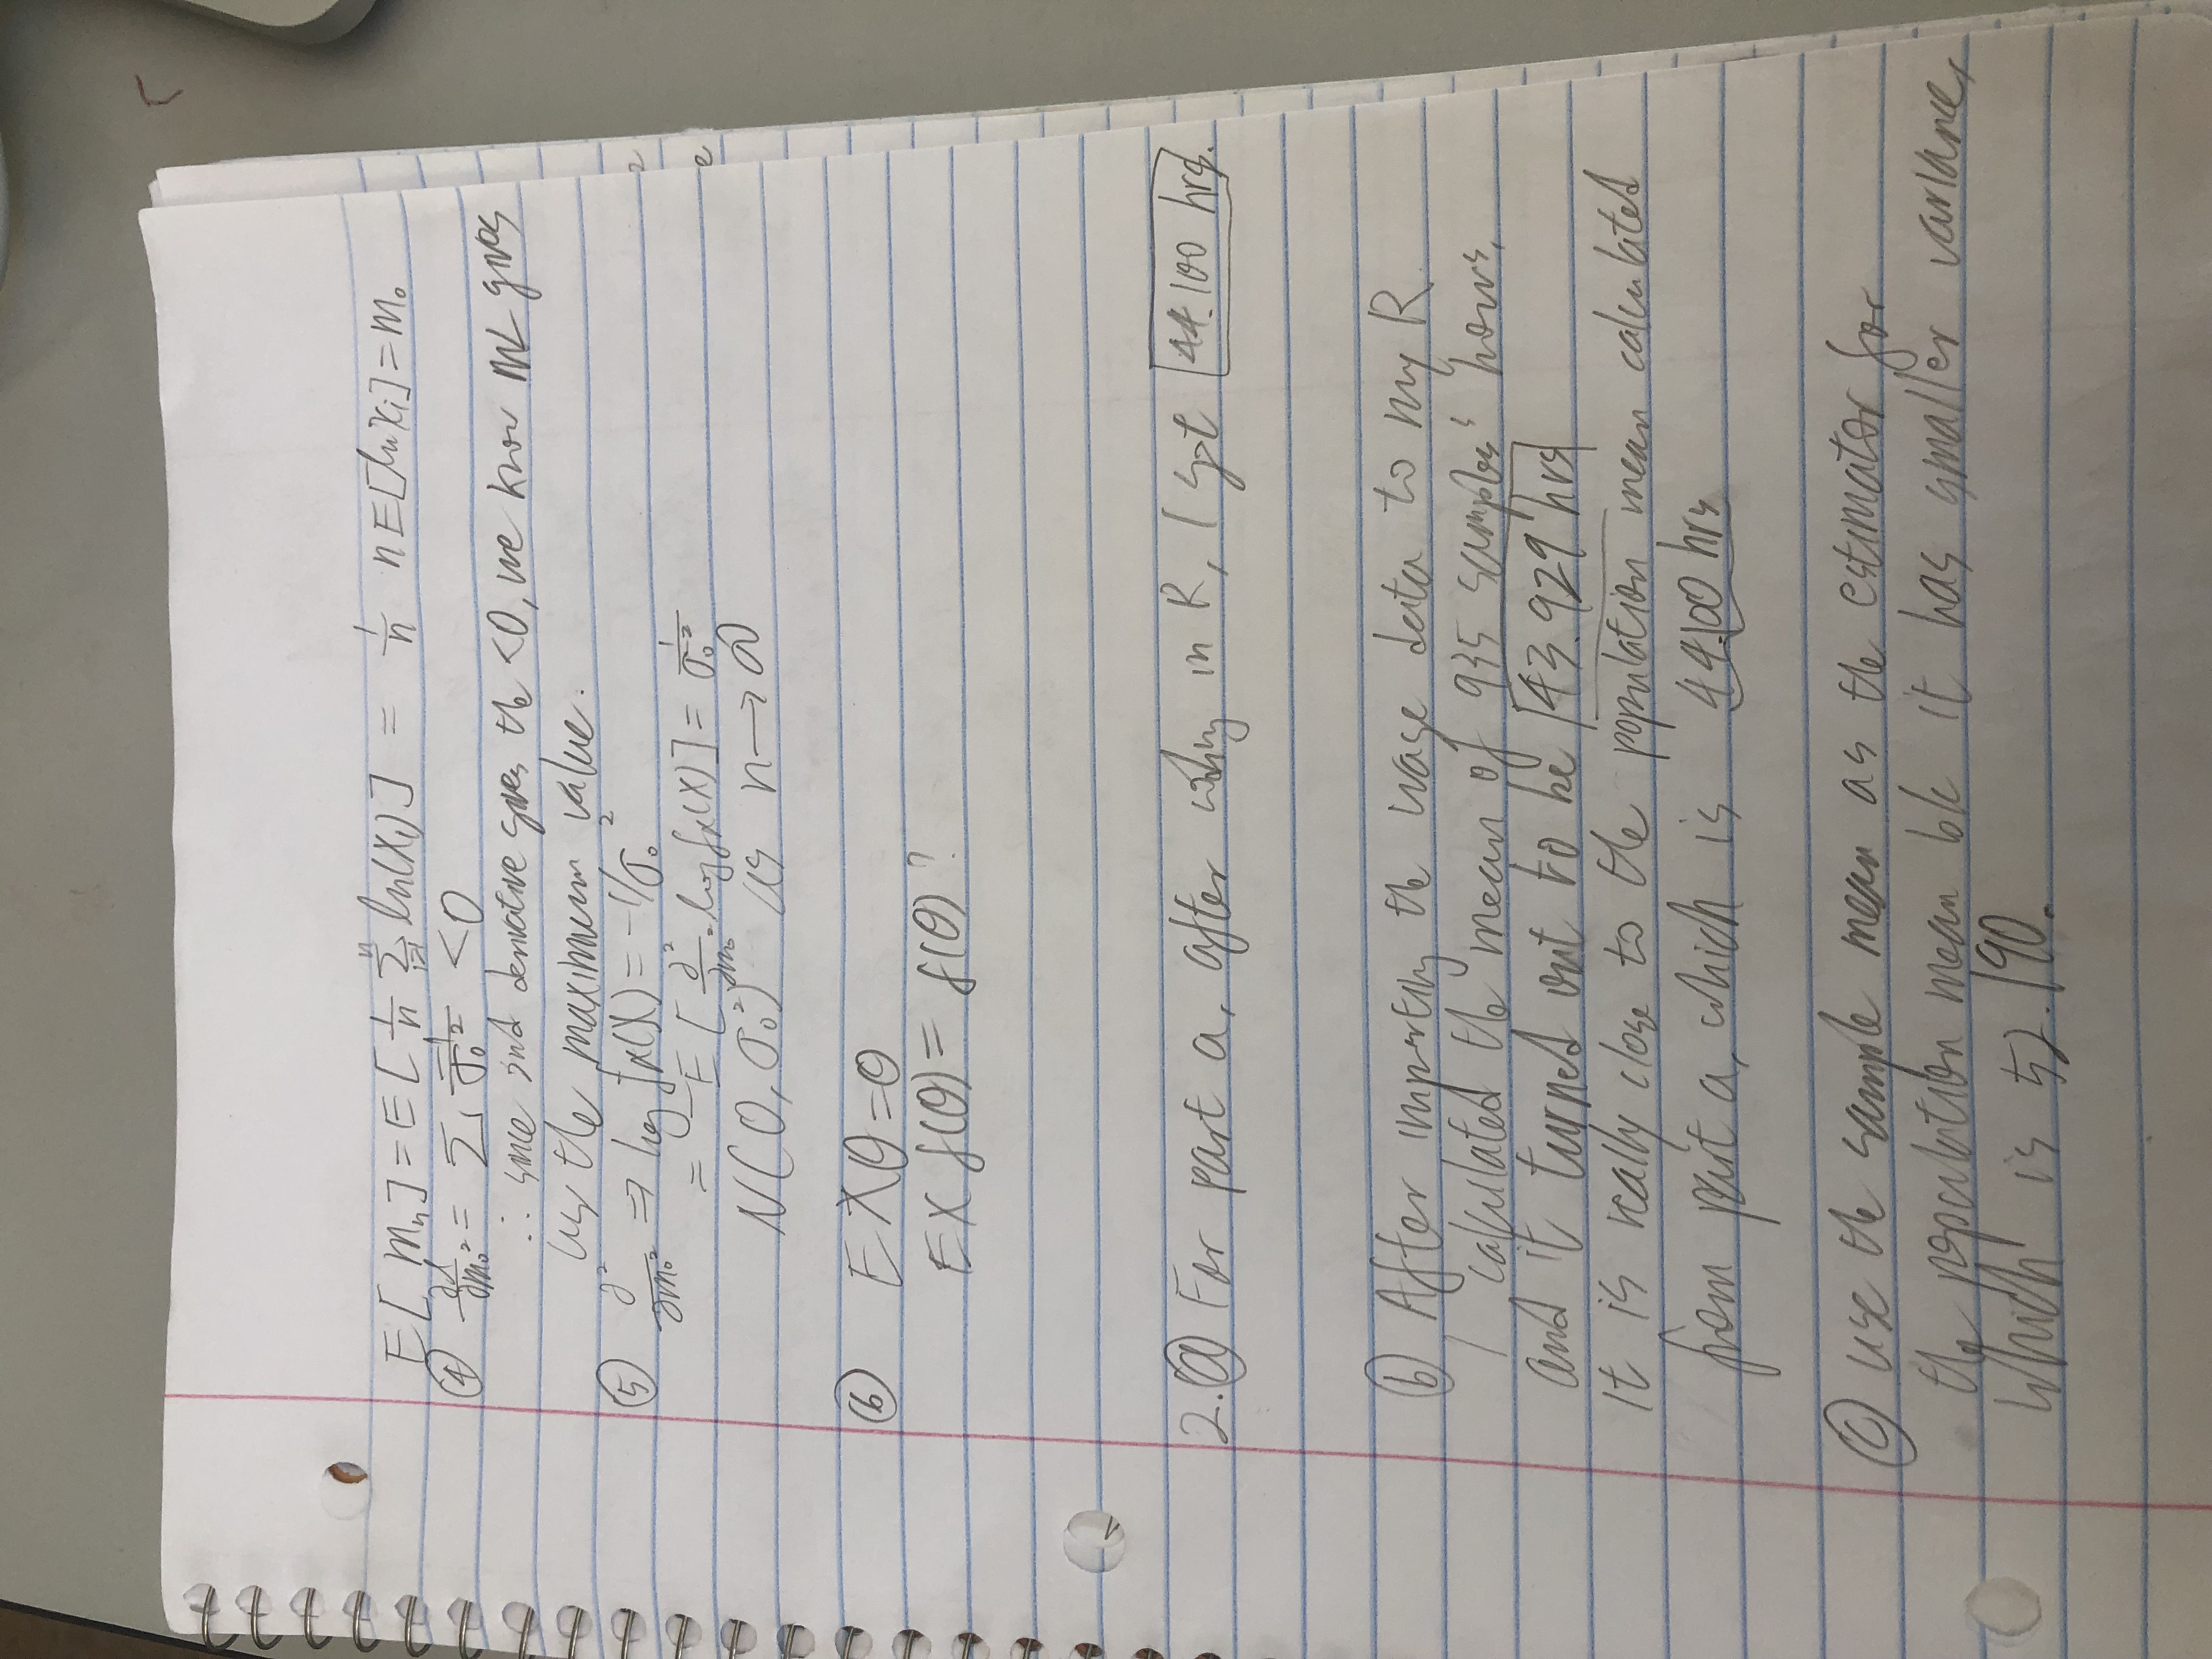 E[ mₙ ] = E[ 1/n Σᵢ₌₁ⁿ ln(Xᵢ) ] = 1/n n E[ln Xᵢ] = m₀
④ ∂l/∂m₀² = Σ -1/σ₀² < 0
∴ since 2nd derivative gives the <0, we know ML gives
us the maximum value.
⑤ ∂²/∂m₀² ⇒ log fx(X) = -1/σ₀²
= -E [ ∂²/∂m₀² log fx(X) ] = 1/σ₀²
N(0, σ₀²) as n → ∞
⑥ E X θ = θ
E X f(θ) = f(θ) ?
2. ⓐ For part a, after coding in R, I got 44.100 hrs.
ⓑ After importing the wage data to my R
I calculated the mean of 935 samples' hours,
and it turned out to be 43.929 hrs
It is really close to the population mean calculated
from part a, which is 44.100 hrs
ⓒ use the sample mean as the estimator for
the population mean b/c it has smaller variance,
which is 52.190.